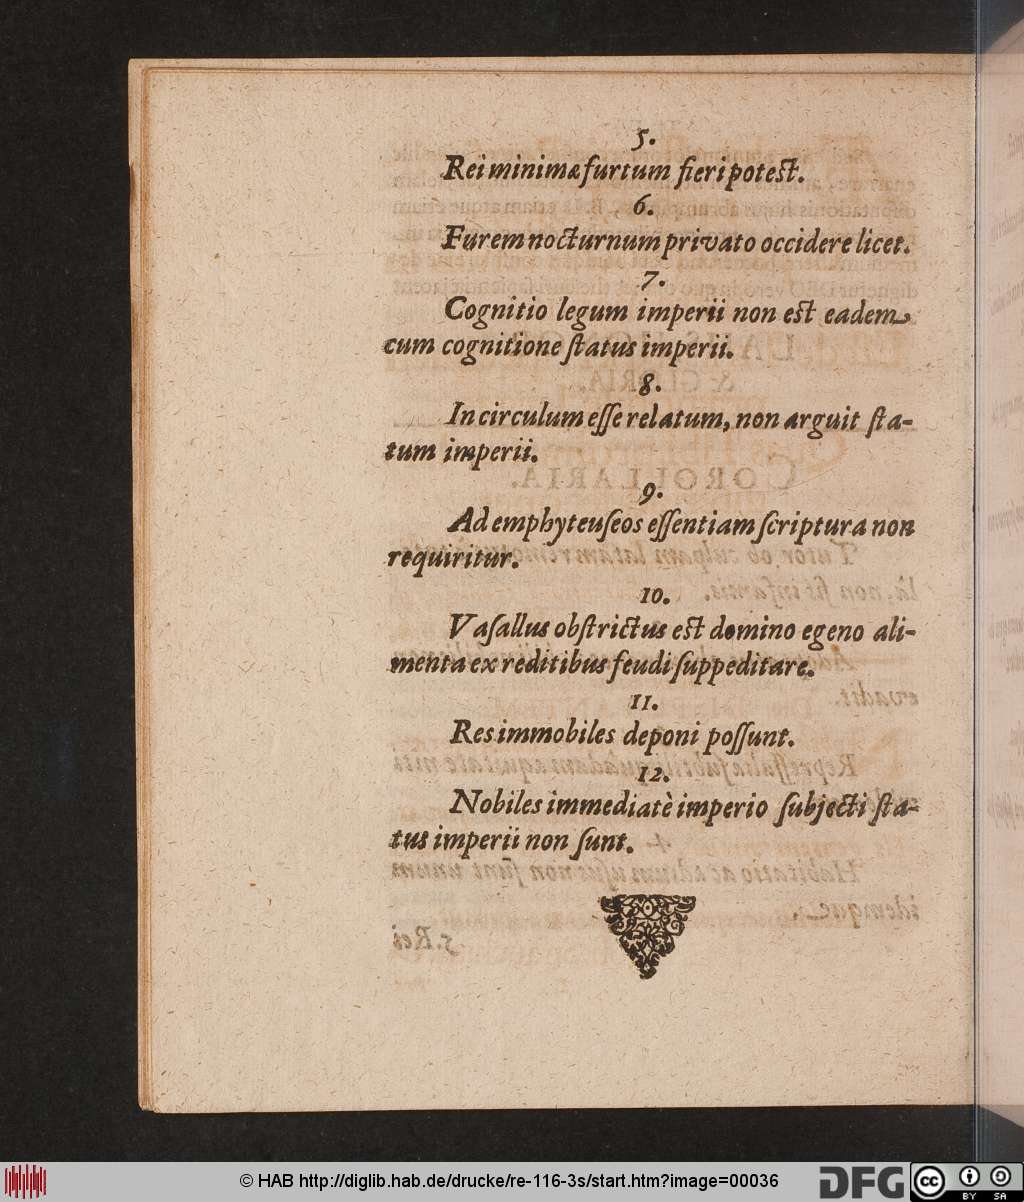 5.
Rei minimæ furtum fieri potest.
6.
Furem nocturnum privato occidere licet.
7.
Cognitio legum imperii non est eadem
cum cognitione ſtatus imperii.
8.
In circulum eſſe relatum, non arguit ſta-
tum imperii.
9.
Ad emphyteuſeos eſſentiam ſcriptura non
requiritur.
10.
Vaſallus obſtrictus est domino egeno ali-
menta ex reditibus feudi ſuppeditare.
11.
Res immobiles deponi poſſunt.
12.
Nobiles immediatè imperio ſubjecti ſta-
tus imperii non ſunt.
© HAB http://diglib.hab.de/drucke/re-116-3s/start.htm?image=00036
DFG
cc BY SA